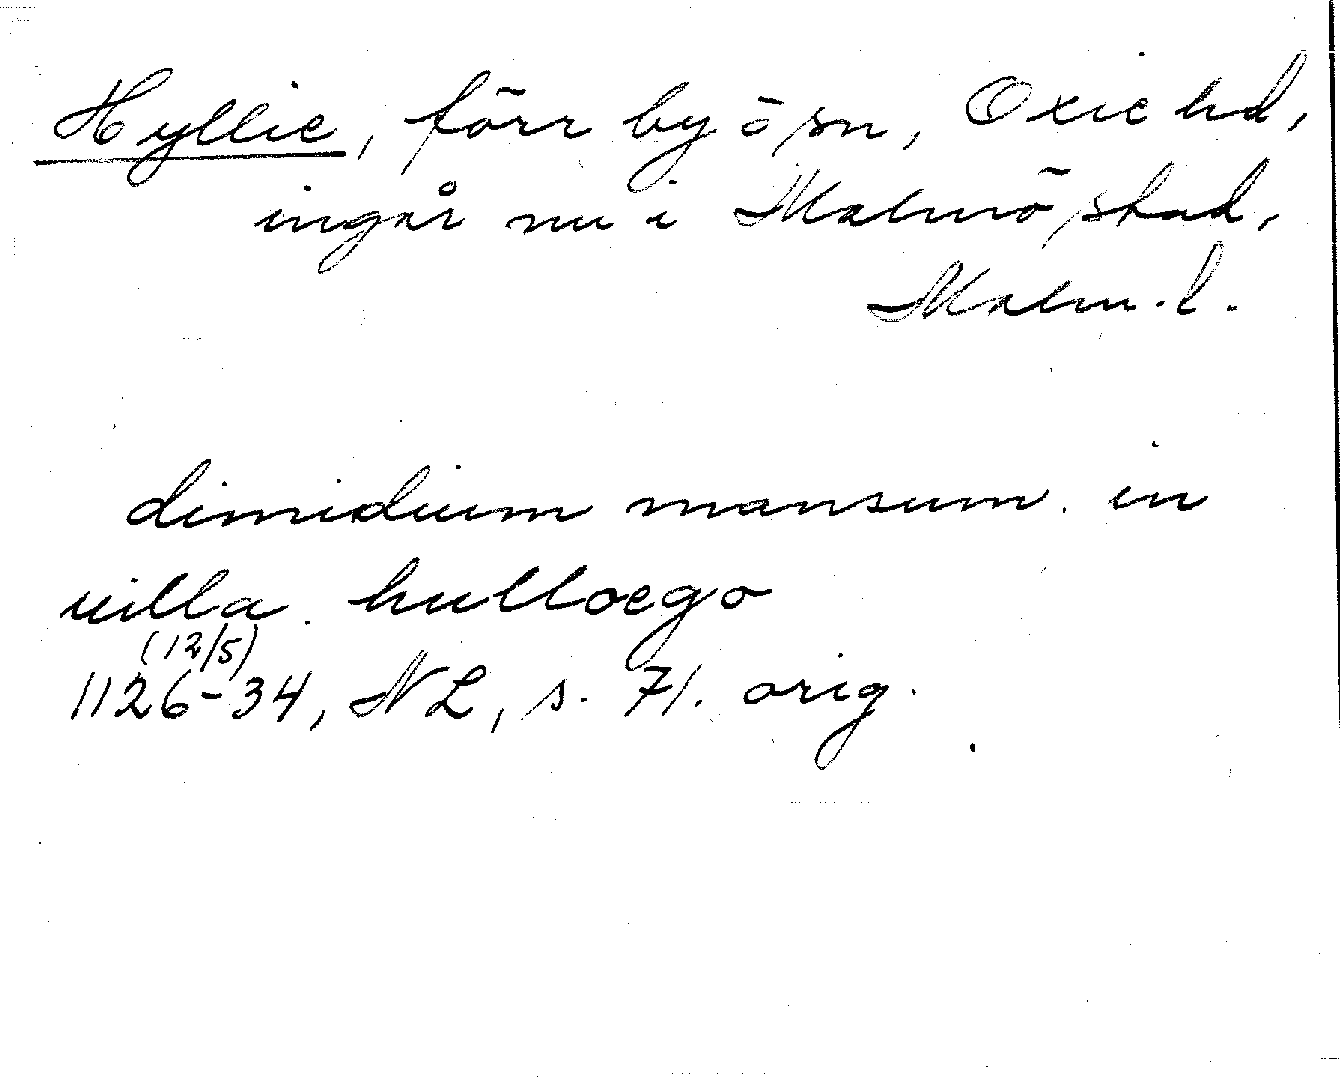 Hyllie, förr by o sn, Oxie hd,
ingår nu i Malmö stad,
Malm. l.
dimidium mansum in
uilla hulloego
(12/5)
1126-34, NL, s. 71. orig.